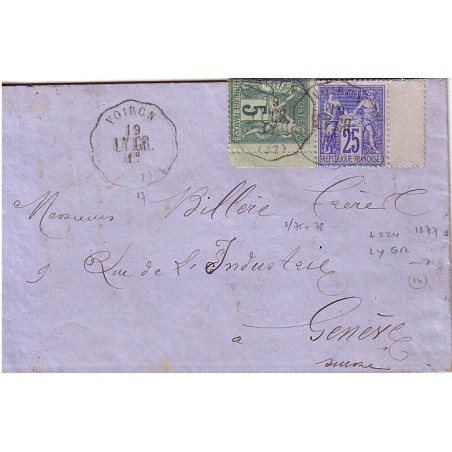 VOIRON
19
LY.GR.
1º
5
19
POSTES
25
REPUBLIQUE FRANÇAISE
Messieurs Billère Frère &
1/75+78
L224 1877
LY GR
9 Rue de l'Industrie
(14)
à Genève
Suisse